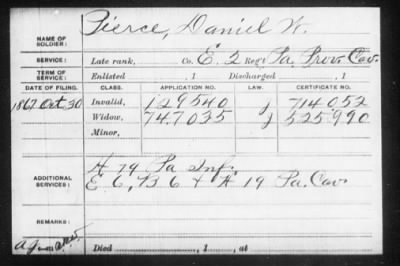 NAME OF SOLDIER: Pierce, Daniel W.
SERVICE: Late rank, Co. E. 2 Reg't Pa. Prov. Cav.
TERM OF SERVICE: Enlisted , 1 Discharged , 1
DATE OF FILING. CLASS. APPLICATION NO. LAW. CERTIFICATE NO.
1867 Oct 30 Invalid, 129540 J 714052
Widow, 747035 J 525990
Minor,
A 79 Pa Inf.
ADDITIONAL SERVICES: E 6, B 6 & A 19 Pa. Cav.
REMARKS:
Died , 1 , at